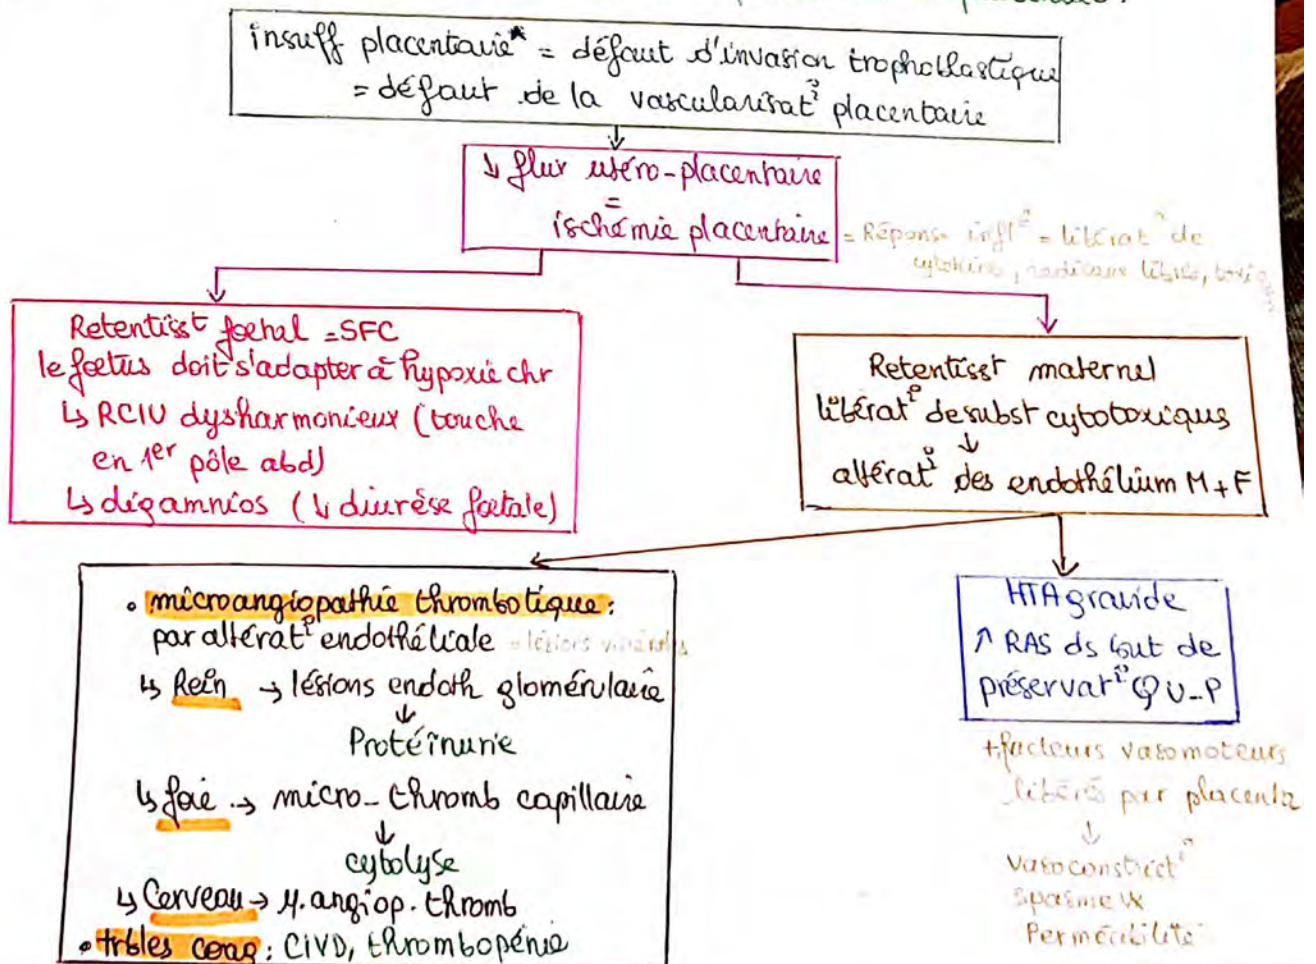 insuff placentaire* = défaut d'invasion trophoblastique
= défaut de la vascularisat° placentaire
↓ flux utéro-placentaire
=
ischémie placentaire = Réponse infl° = libérat° de
cytokines, radicaux libres,
Retentisst foetal = SFC
le foetus doit s'adapter à hypoxie chr
↳ RCIU dysharmonieux (touche
en 1er pôle abd)
↳ oligamnios (↓ diurèse foetale)
Retentisst maternel
libérat° de subst cytotoxiques
↓
altérat° des endothélium M + F
• microangiopathie thrombotique :
par altérat° endothéliale = lésions viscérales
↳ Rein → lésions endoth glomérulaire
↓
Protéinurie
↳ foie → micro-thromb capillaire
↓
cytolyse
↳ Cerveau → µ.angiop.thromb
• trbles coag : CIVD, thrombopénie
HTA gravide
↑ RAS ds but de
préservat° Q U-P
+ facteurs vasomoteurs
libérés par placenta
↓
Vasoconstrict°
spasme vx
Perméabilité